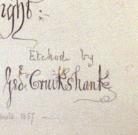 ight
Etched by
Geo. Cruikshank
1857